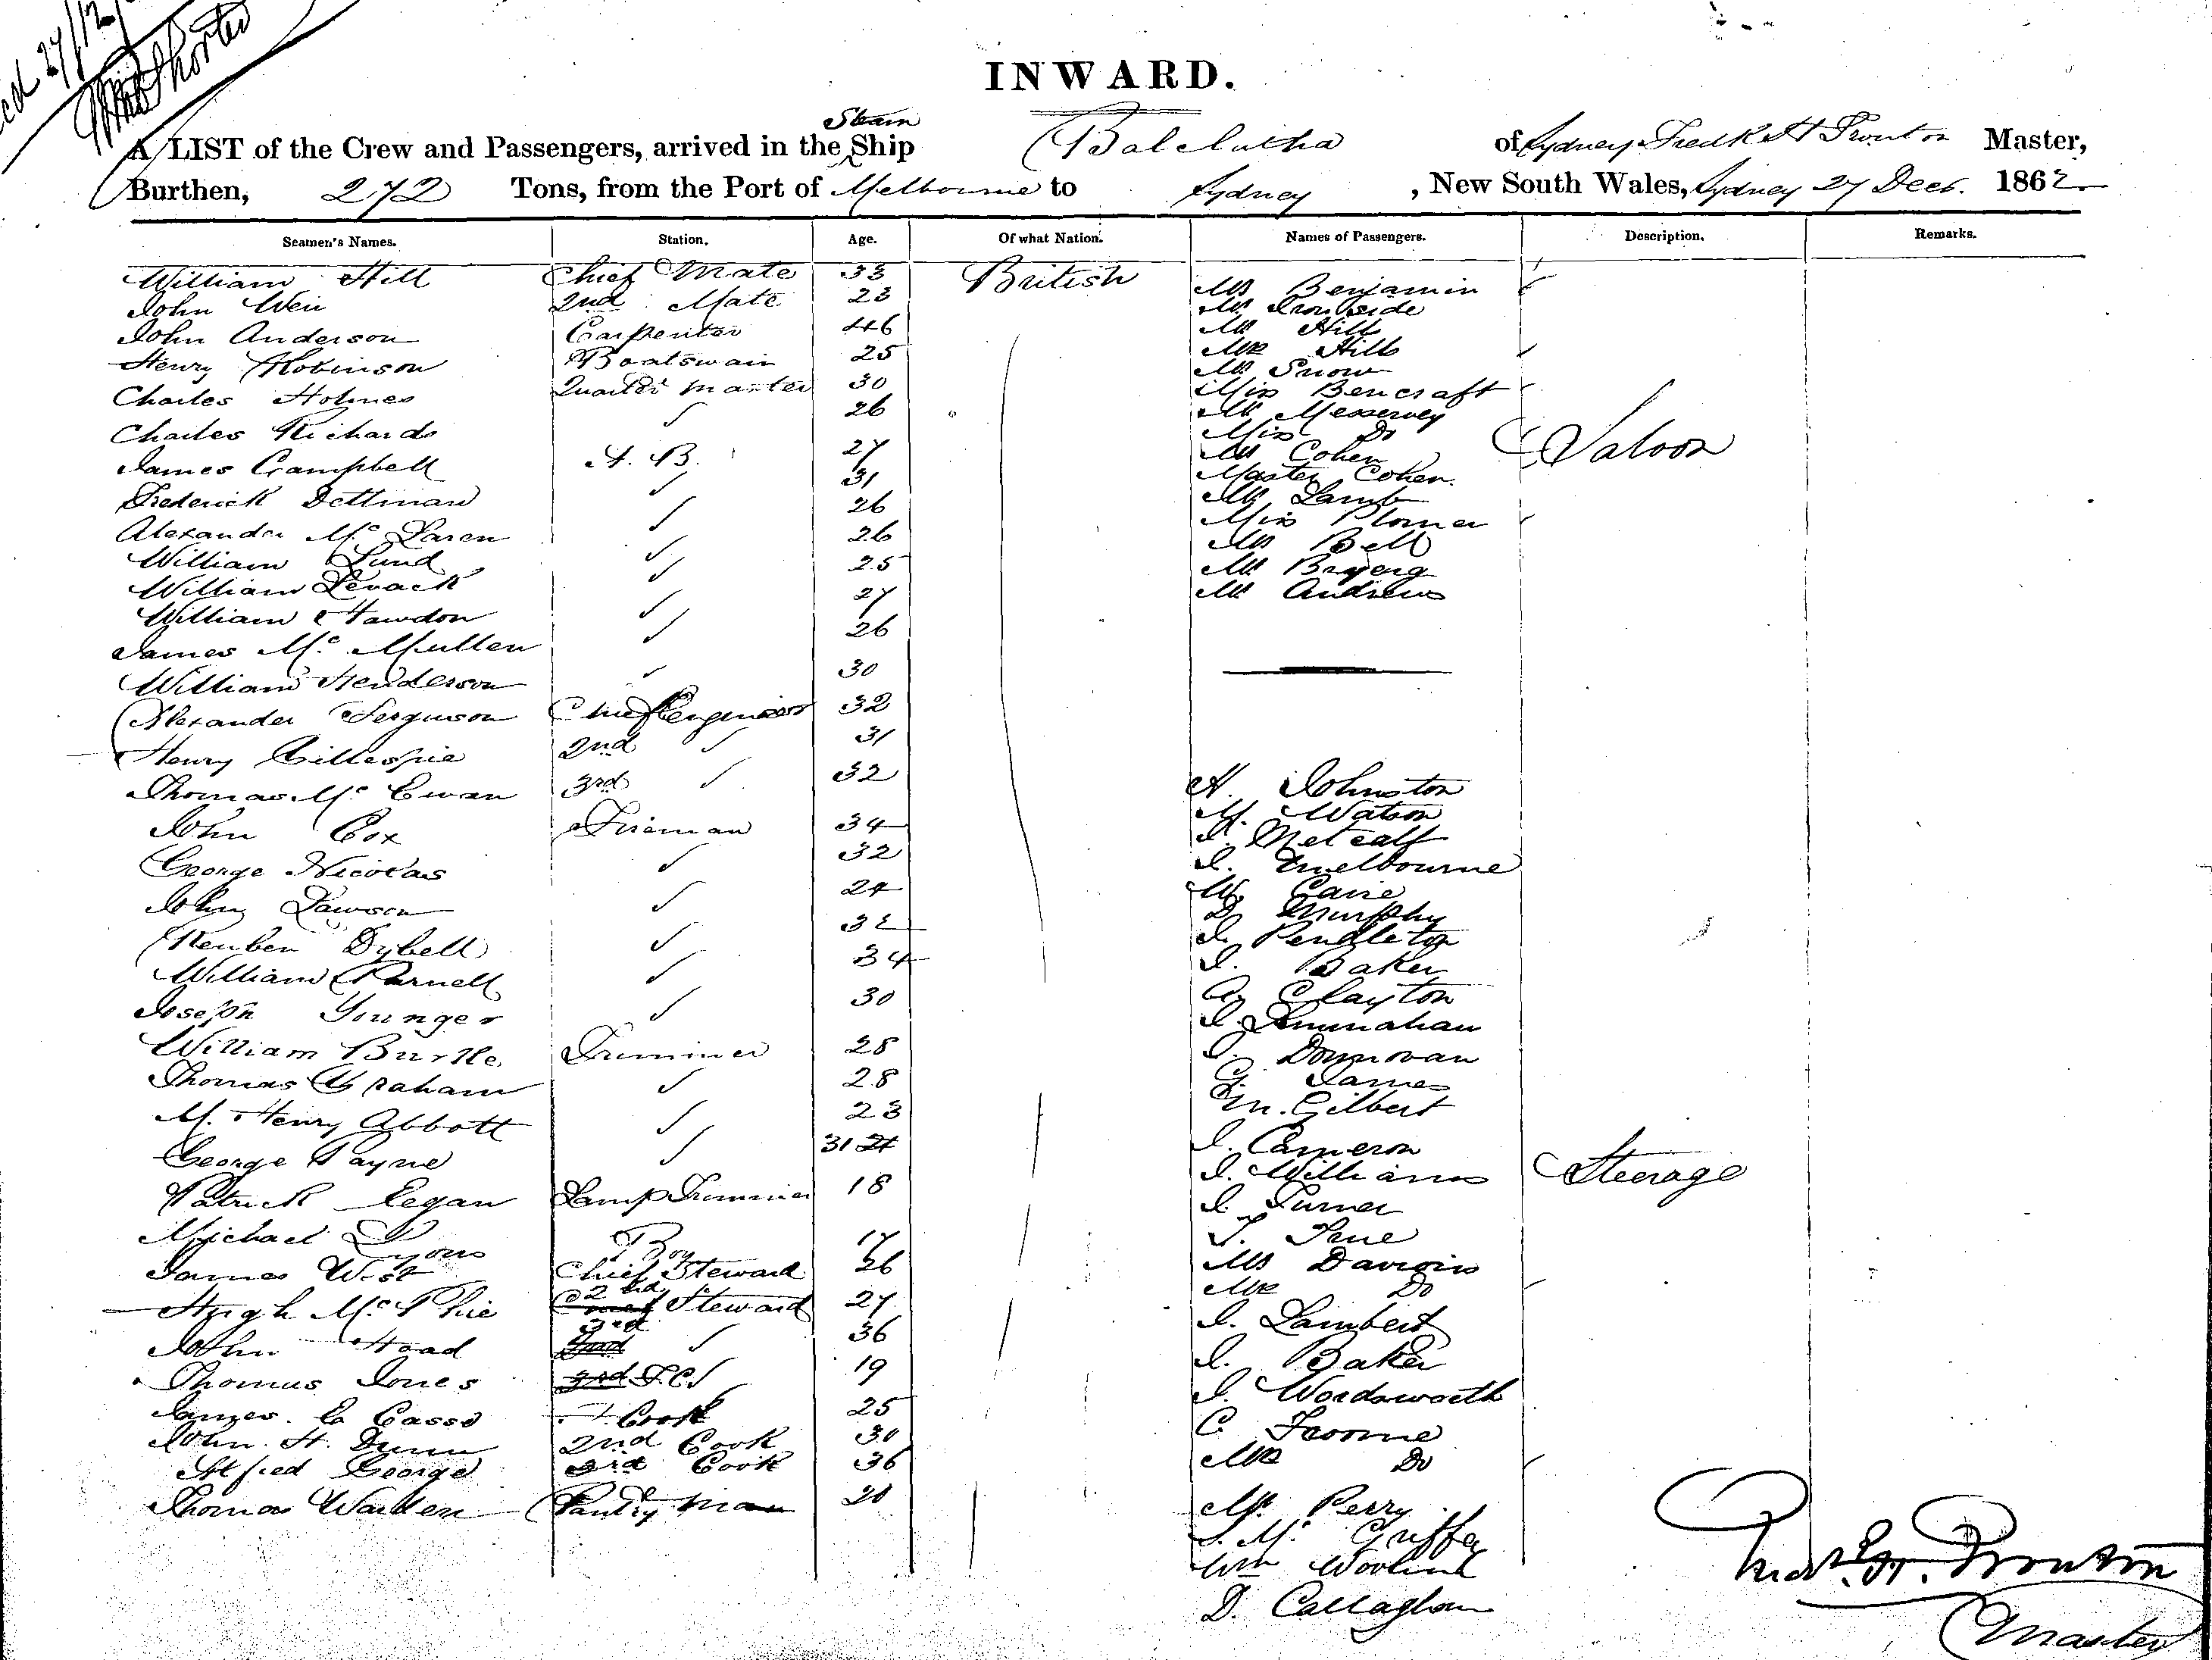 27/12/
INWARD.
Steam
A LIST of the Crew and Passengers, arrived in the Ship Balclutha of Sydney Fredk H Trouton Master,
Burthen, 272 Tons, from the Port of Melbourne to Sydney, New South Wales, Sydney 27 Decr. 1862
Seamen's Names. Station. Age. Of what Nation. Names of Passengers. Description. Remarks.
William Hill Chief Mate 33 British
John Weir 2nd Mate 23
John Anderson Carpenter 46
Henry Robinson Boatswain 25
Charles Holmes Quarter Master 30
Charles Richards ✓ 26
James Campbell A. B. 27
Frederick Dettman ✓ 31
Alexander Mc Laren ✓ 26
William Lund ✓ 26
William Levack ✓ 25
William Hawdon ✓ 27
James Mc Mullen ✓ 26
William Henderson ✓ 30
Alexander Ferguson Chief Engineer 32
Henry Gillespie 2nd ✓ 31
Thomas Mc Ewan 3rd ✓ 32
John Cox Fireman 34
George Nicolas ✓ 32
John Lawson ✓ 24
Reuben Dybell ✓ 32
William Parnell ✓ 34
Joseph Younger ✓ 30
William Burtle Trimmer 28
Thomas Graham ✓ 28
M. Henry Abbott ✓ 23
George Payne ✓ 31
Patrick Regan Lamp Trimmer 18
Michael Lyons Boy 17
James West Chief Steward 26
Hugh Mc Phie 2nd Steward 27
John Hoad 3rd ✓ 36
Thomas Jones 19
James Lo Casso Cook 25
John H. Dunn 2nd Cook 30
Alfred George 3rd Cook 36
Thomas Warden Pantry man 20
Mr Benjamin
Mr Ironside
Mr Hill
Mrs Hill
Mr Snow
Miss Bencraft
Mr Messervey
Miss Do
Mr Cohen
Master Cohen
Mr Lamb
Miss Plomer
Mr Bell
Mr
Mr Andrews
Saloon
A. Johnston
M. Watson
Metcalf
J. Melbourne
W. Cane
D. Murphy
J. Pendleton
J. Baker
A. Clayton
J.
J. Donnovan
G. James
M. Gilbert
J. Cameron
J. Williams
J. Turner
T.
Mr
Mrs Do
J. Lambert
J. Baker
J. Wordsworth
C. Froome
Mrs Do
Mr. Perry
Wm
D. Callaghan
Steerage
Fredk H. Trouton
Master